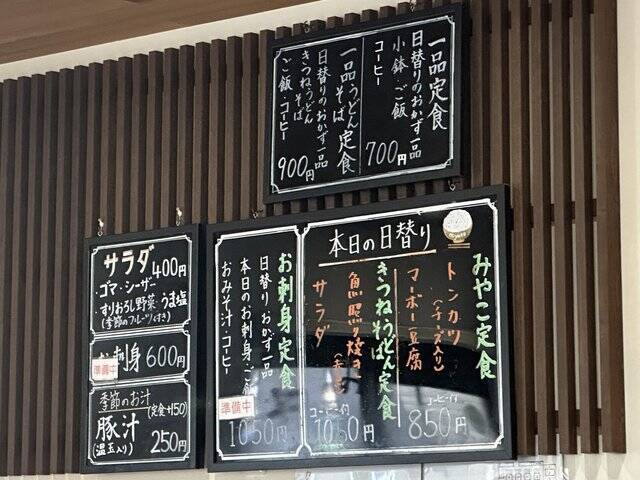 一品定食
日替りのおかず一品
小鉢・ご飯
コーヒー
700円
一品うどんそば定食
日替りのおかず一品
きつねうどん
そば
ご飯・コーヒー
900円
サラダ 400円
・ゴマ・シーザー
・すりおろし野菜・うま塩
(季節のフルーツ付き)
お刺身 600円
準備中
季節のお汁
(定食+150)
豚汁
(温玉入り)
250円
本日の日替り
みやこ定食
トンカツ
(チーズ入り)
マーボー豆腐
コーヒー付
850円
きつねうどんそば定食
魚照り焼き
サラダ
コーヒー付
1050円
お刺身定食
日替りおかず一品
本日のお刺身・ご飯
おみそ汁・コーヒー
準備中
1050円